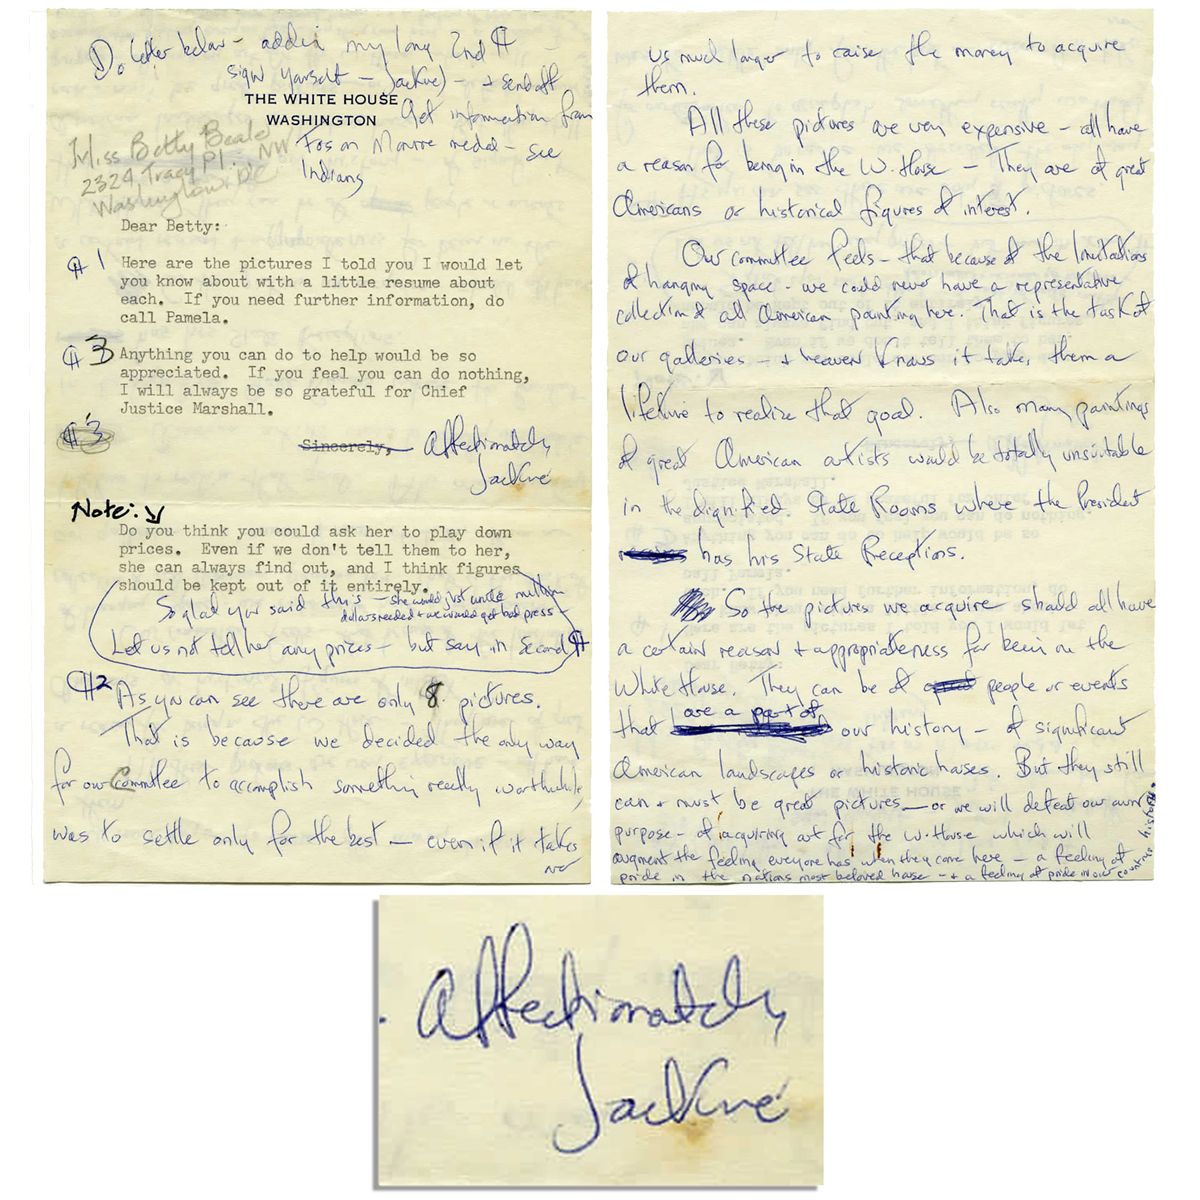 Do letter below - adding my long 2nd ¶
sign yourself - Jackie) - + send off
THE WHITE HOUSE
WASHINGTON
Get information from
Fos on Monroe medal - see
Indians
Miss Betty Beale
2324 Tracy Pl. NW
Washington DC
Dear Betty:
¶ 1 Here are the pictures I told you I would let
you know about with a little resume about
each. If you need further information, do
call Pamela.
¶ 3 Anything you can do to help would be so
appreciated. If you feel you can do nothing,
I will always be so grateful for Chief
Justice Marshall.
¶ 3
Sincerely, Affectionately
Jackie
Note:
Do you think you could ask her to play down
prices. Even if we don't tell them to her,
she can always find out, and I think figures
should be kept out of it entirely.
So glad you said this - she would just write million
dollars needed + we would get bad press -
Let us not tell her any prices - but say in second ¶
¶ 2 As you can see there are only 8 pictures.
That is because we decided the only way
for our Committee to accomplish something really worthwhile,
was to settle only for the best - even if it takes
us much longer to raise the money to acquire
them.
All these pictures are very expensive - all have
a reason for being in the W. House - They are of great
Americans or historical figures of interest.
Our committee feels - that because of the limitations
of hanging space - we could never have a representative
collection of all American painting here. That is the task of
our galleries - + heaven knows it takes them a
lifetime to realize that goal. Also many paintings
of great American artists would be totally unsuitable
in the dignified State Rooms where the President
has his State Receptions.
So the pictures we acquire should all have
a certain reason + appropriateness for being in the
White House. They can be of great people or events
that are a part of our history - of significant
American landscapes or historic houses. But they still
can + must be great pictures - or we will defeat our own
purpose - of acquiring art for the W. House which will
augment the feeling everyone has when they come here - a feeling of
pride in the nations most beloved house - + a feeling of pride in our countries
history
Affectionately
Jackie